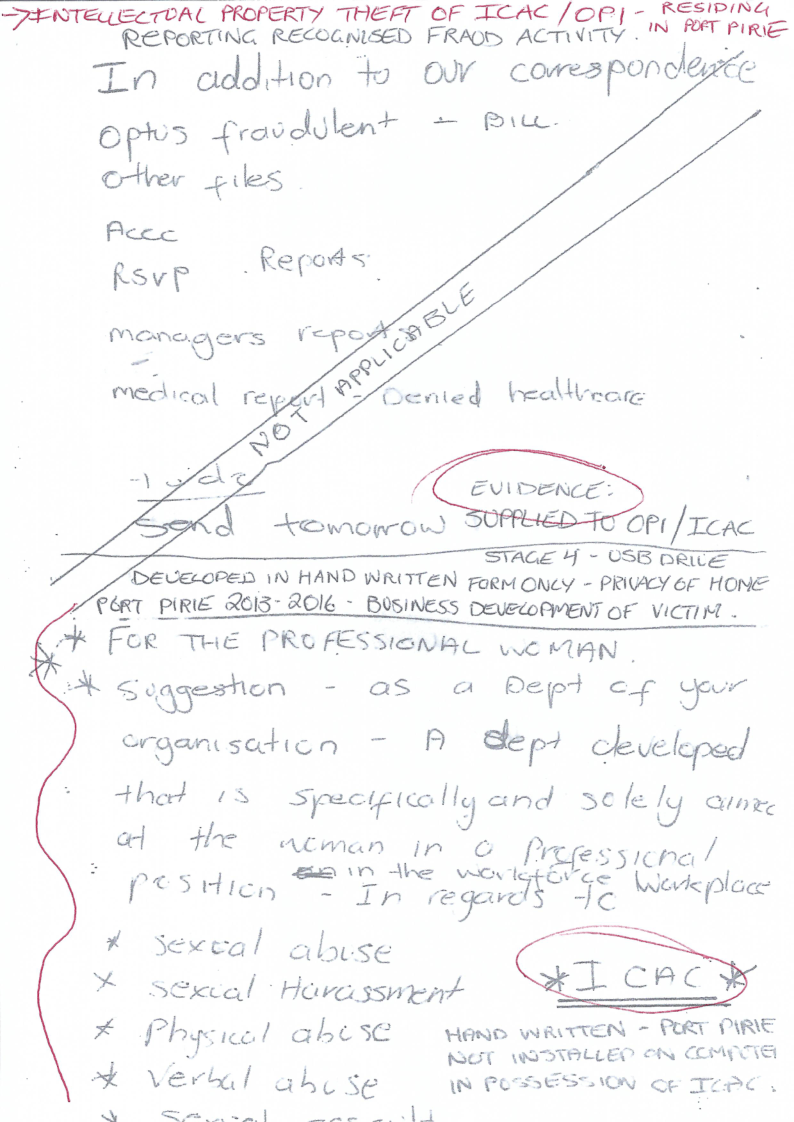 → INTELLECTUAL PROPERTY THEFT OF ICAC/OPI - RESIDING
IN PORT PIRIE
REPORTING RECOGNISED FRAUD ACTIVITY.
In addition to our correspondence
Optus fraudulent - BILL.
other files.
Accc
RSVP . Reports.
managers reports
medical report - Denied healthcare
NOT APPLICABLE
EVIDENCE:
Send tomorrow SUPPLIED TO OPI/ICAC
STAGE 4 - USB DRIVE
DEVELOPED IN HAND WRITTEN FORM ONLY - PRIVACY OF HOME
PORT PIRIE 2013-2016 - BUSINESS DEVELOPMENT OF VICTIM.
* FOR THE PROFESSIONAL WOMAN.
* Suggestion - as a Dept of your
organisation - A dept developed
that is specifically and solely aimed
at the woman in a Professional
position in the workforce
- In regards to Workplace
* Sexual abuse
* Sexual Harassment
* ICAC *
* Physical abuse
* Verbal abuse
HAND WRITTEN - PORT PIRIE
NOT INSTALLED ON COMPUTER
IN POSSESSION OF ICAC.
* Sexual assault